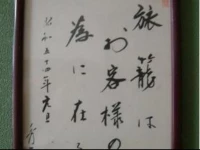 旅籠は
お客様の
為に在る
昭和五十四年元旦